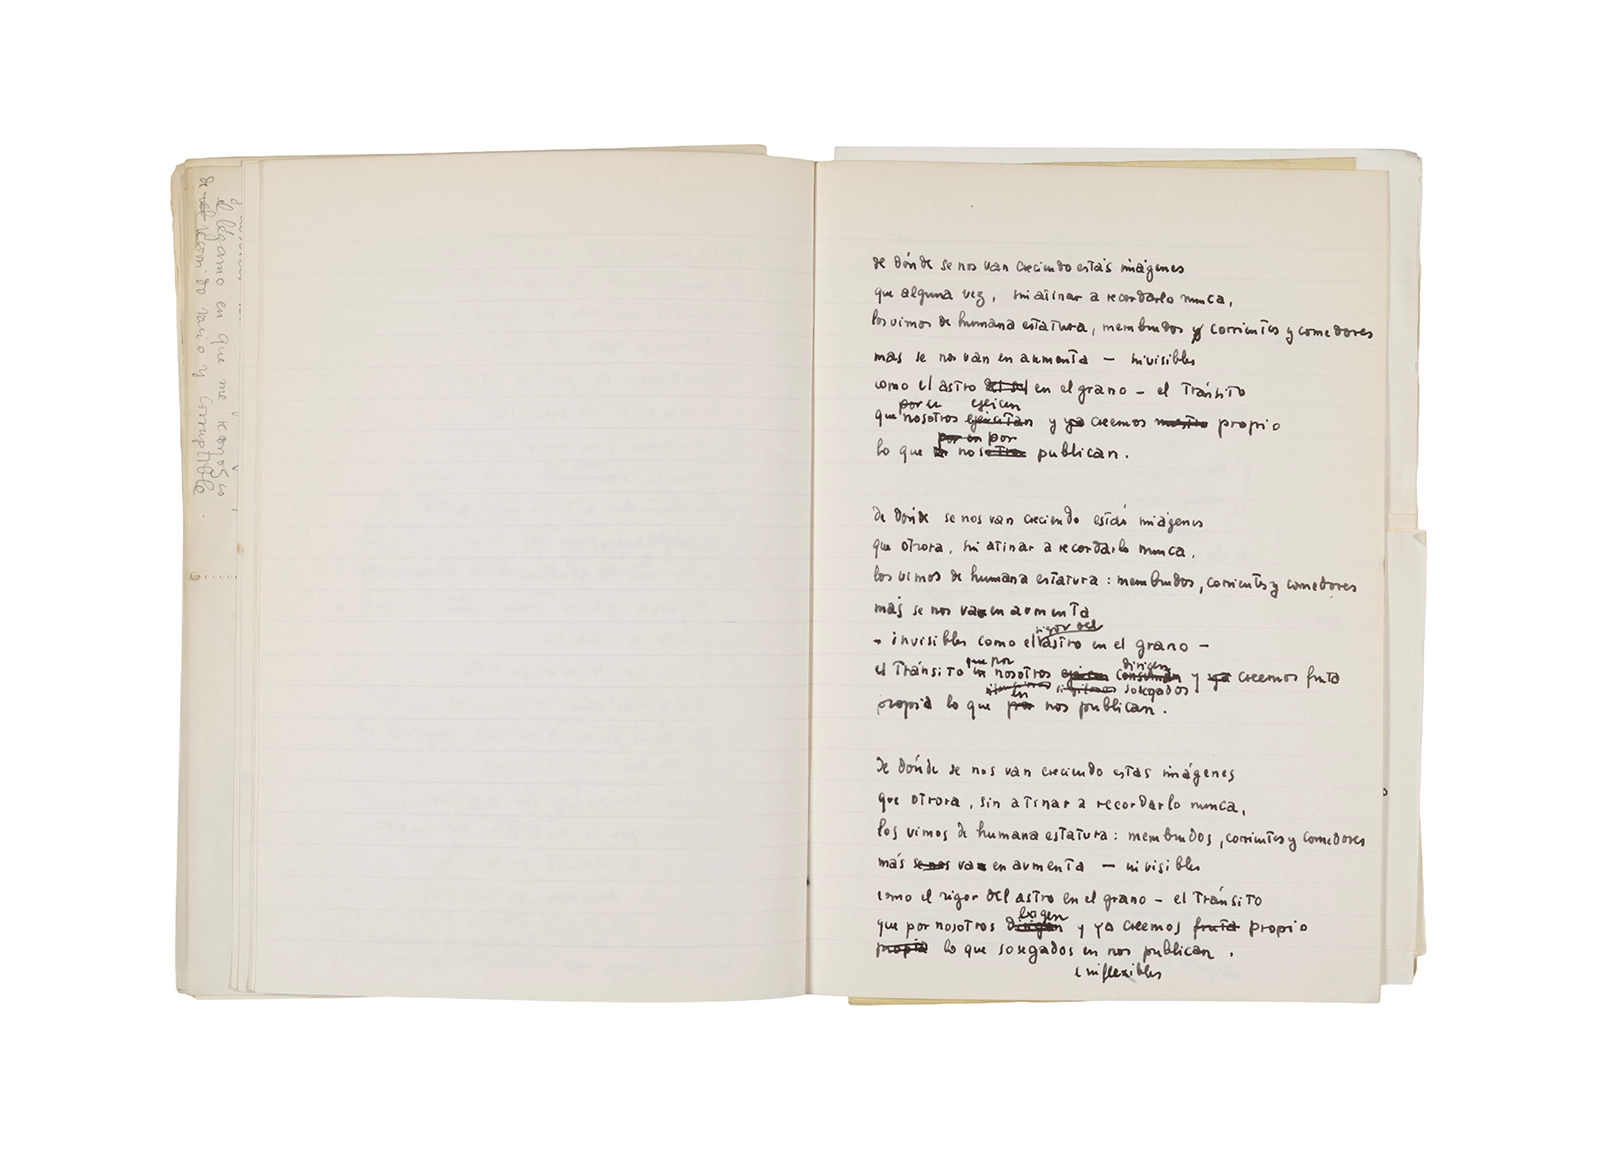 el légamo en que me
de recorrido vacio y corruptible.
de dónde se nos van creciendo estas imágenes
que alguna vez, sin atinar a recordarlo nunca,
los vimos de humana estatura, membrudos y corrientes y comedores
mas se nos van en aumenta — invisibles
como el astro del sol en el grano — el Tránsito
por
que nosotros ejercitan y ya creemos nuestro propio
por en por
lo que nosotros publican.
de dónde se nos van creciendo estas imágenes
que otrora, sin atinar a recordarlo nunca,
los vimos de humana estatura: membrudos, corrientes y comedores
más se nos va en aumenta
rigor del
- invisibles como el astro en el grano -
que por dirigen
el Tránsito nosotros ejercen consuman y ya creemos fruta
en sosegados
propia lo que por nos publican.
de dónde se nos van creciendo estas imágenes
que otrora, sin atinar a recordarlo nunca,
los vimos de humana estatura: membrudos, corrientes y comedores
más se nos va en aumenta — invisibles
como el rigor del astro en el grano — el Tránsito
exigen
que por nosotros dirigen y ya creemos fruta propio
propia lo que sosegados en nos publican.
e inflexibles